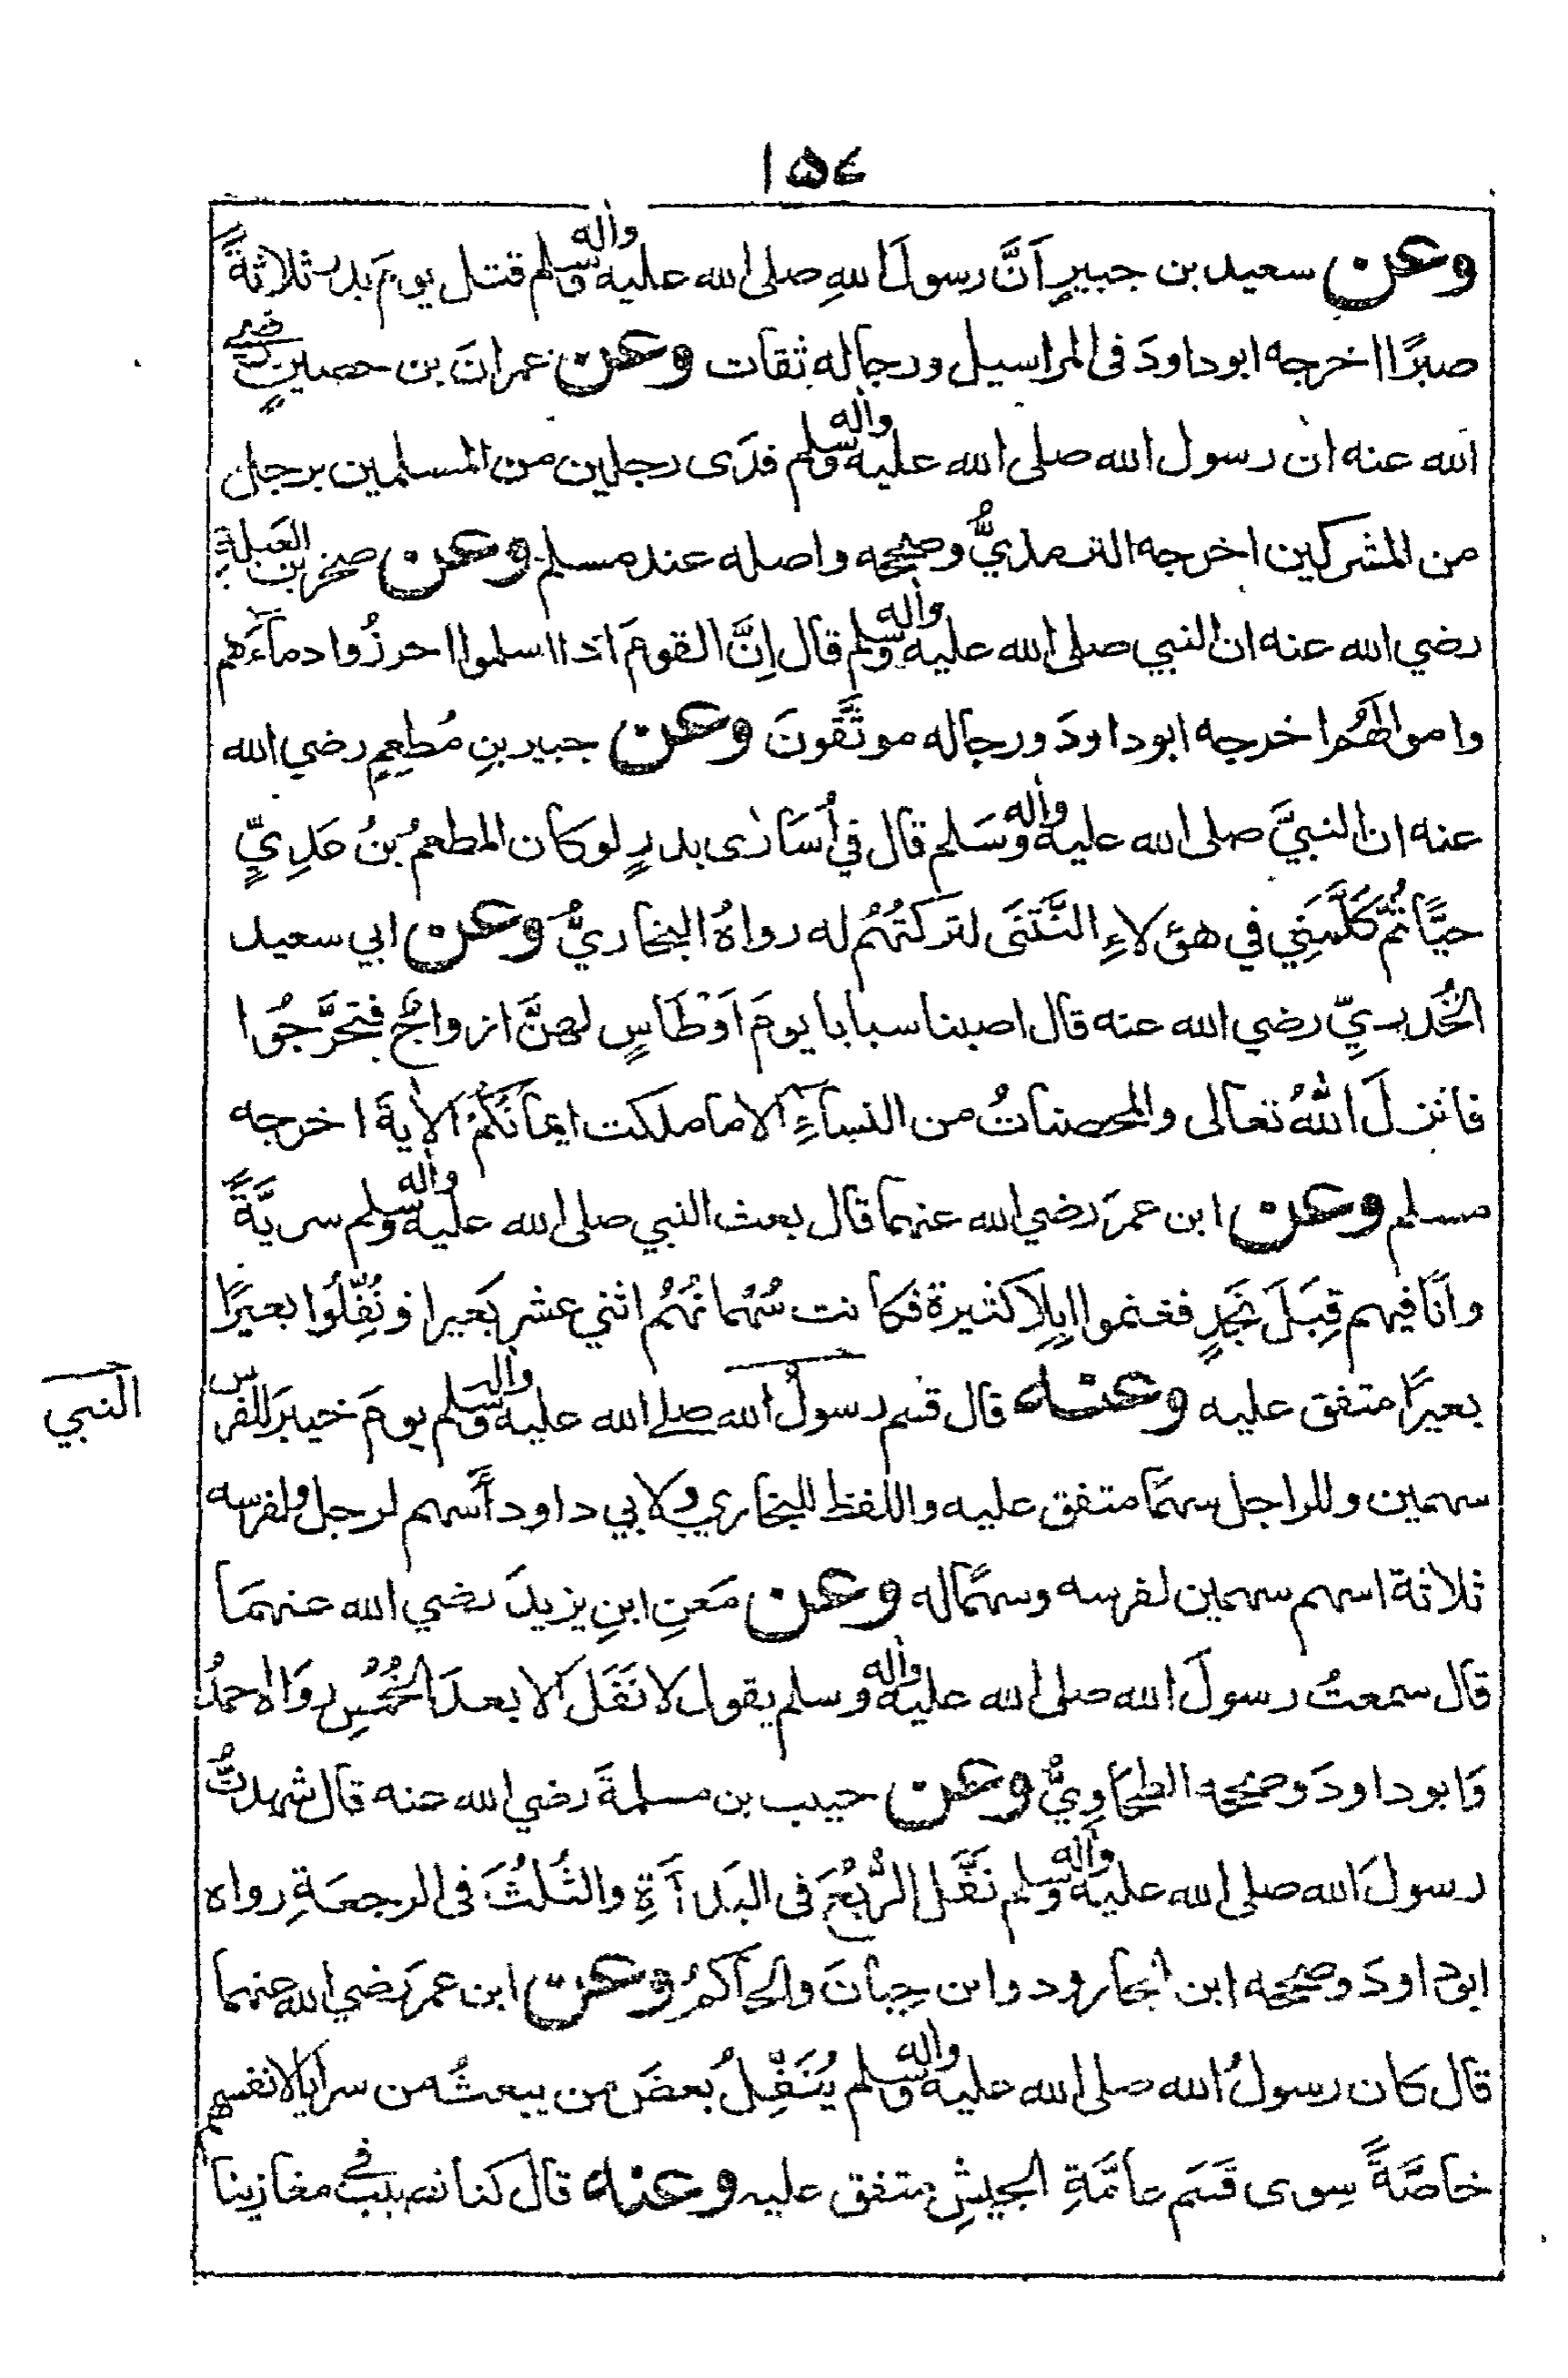 ١٥٤
وعن سعيد بن جبيرٍ اَنَّ رسولَ اللهِ صلى الله عليه واله وسلم قتل يومَ بدر ثلاثةً
صبرًا اخرجه ابو داودَ فى المراسيل ورجاله ثقات وعن عمرانَ بن حصينٍ رضي
الله عنه ان رسول الله صلى الله عليه واله وسلم فدَى رجلين من المسلمين برجل
من المشركين اخرجه الترمذيُّ وصححه واصله عند مسلم وعن صخر بن العَيلةِ
رضي الله عنه ان النبي صلى الله عليه واله وسلم قال اِنَّ القومَ اذا اسلموا احرزُوا دماءَهم
واموالهُم اخرجه ابو داودَ ورجاله موثَّقونَ وعن جبير بنِ مُطعِمٍ رضي الله
عنه ان النبيَّ صلى الله عليه واله وسَلم قال في اُسَارٰى بدرٍ لو كان المطعمُ بنُ عَدِيٍّ
حيًّا ثُمَّ كَلَّمَنِي في هؤلاءِ النَّتنَى لتركتُهُم له رواهُ البخاريُّ وعن ابي سعيد
الخُدريِّ رضي الله عنه قال اصبنا سبايا يومَ اَوْطَاسٍ لهنَّ ازواجٌ فتحرَّجُوا
فانزلَ اللهُ تعالى والمحصناتُ من النساءِ الا ما ملكت ايمانُكُمْ الأيةَ اخرجه
مسلم وعن ابن عمرَ رضي الله عنهما قال بعث النبي صلى الله عليه واله وسلم سريَّةً
وانَا فيهم قِبَلَ نَجدٍ فغنموا اِبِلاً كثيرة فكانت سُهمانُهُم اثني عشر بَعيرا ونُفِّلُوا بعيرًا
بعيرًا متفق عليه وعنه قال قسم رسولُ الله صلى الله عليه واله وسلم يومَ خيبرَ للفرس
النبي
سهمين وللراجل سهمًا متفق عليه واللفظ للبخاري ولابي داود اَسهم لرجل ولفرسه
ثلاثة اسهم سهمين لفرسه وسهمًا له وعن مَعنِ ابنِ يزيدَ رضي الله عنهمَا
قال سمعتُ رسولَ الله صلى الله عليه واله وسلم يقول لا نَفَلَ الا بعدَ الخُمُسِ رواه احمدُ
وَابو داودَ وصححه الطحاوِيُّ وعن حبيب بن مسلمةَ رضي الله عنه قال شهدتُ
رسولَ الله صلى الله عليه واله وسلم نَفَّلَ الرُّبُعَ فى البَدأَةِ والثُلُثَ فى الرجعَةِ رواه
ابو داودَ وصححه ابن الجارود وابن حِبانَ والحاكمُ وعن ابن عمرَ رضي الله عنهما
قال كان رسولُ الله صلى الله عليه واله وسلم يُنَفِّلُ بعضَ من يبعثُ من سرايا لانفسهم
خاصَّةً سِوى قَسَمِ عامَّةِ الجيشِ متفق عليه وعنه قال كنا نصيب فى مغازينا